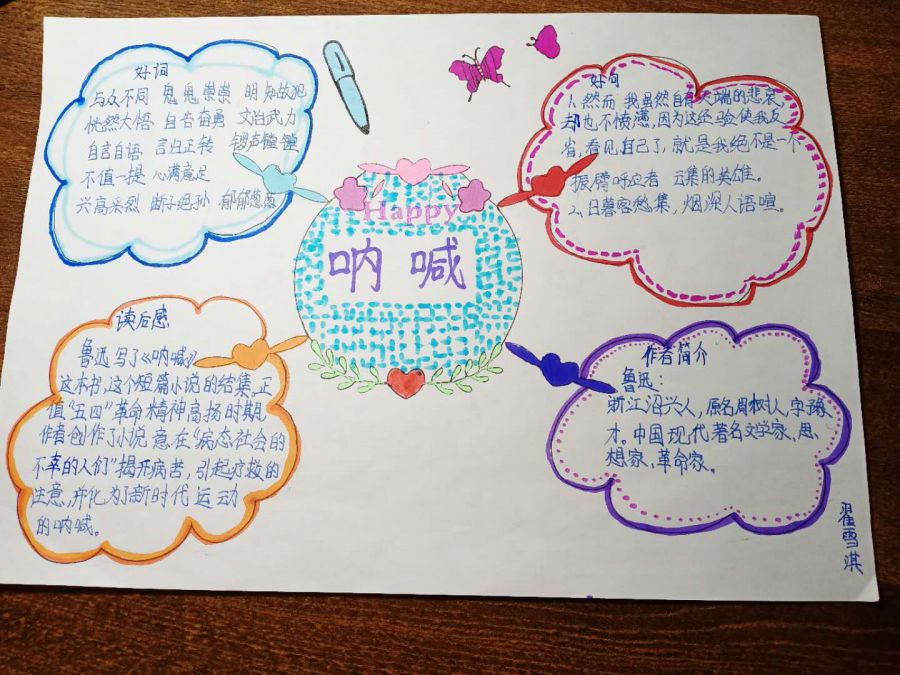 好词
与众不同 鬼鬼崇崇 明知故犯
恍然大悟 自告奋勇 文治武力
自言自语 言归正转 锣声镗镗
不值一提 心满意足
兴高采然 断子绝孙 郁郁葱葱
好句
1、然而 我虽然自有无端的悲哀,
却也不愤懑,因为这经验使我反
省,看见自己了,就是我绝不是一个
振臂呼应者 云集的英雄。
2、日暮客愁集,烟深人语喧。
Happy
呐 喊
读后感
鲁迅写了《呐喊》
这本书,这个短篇小说的结集,正
值“五四”革命精神高扬时期,
作者创作了小说 意在“病态社会的
不幸的人们”揭开病苦,引起疗救的
注意,并化为了新时代运动
的呐喊。
作者简介
鲁迅:
浙江绍兴人,原名周树人,字豫
才。中国现代著名文学家、思
想家、革命家。
翟雪淇